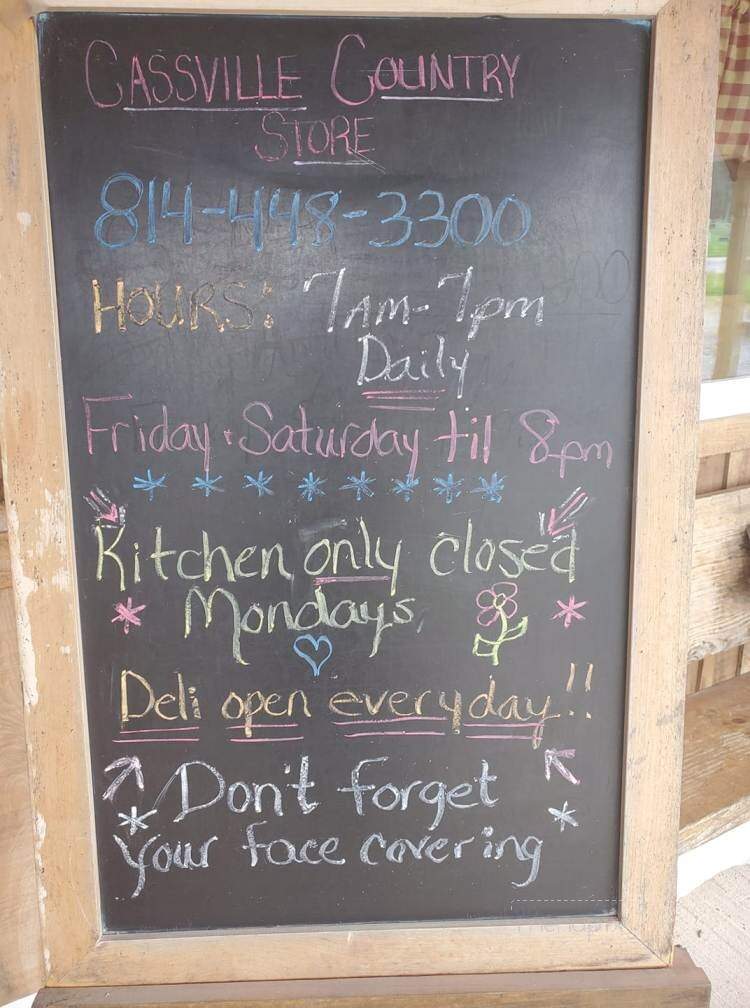 CASSVILLE COUNTRY
STORE
814-448-3300
HOURS: 7AM-7pm
Daily
Friday · Saturday til 8pm
Kitchen only closed
Mondays
Deli open everyday!!
Don't forget
your face covering